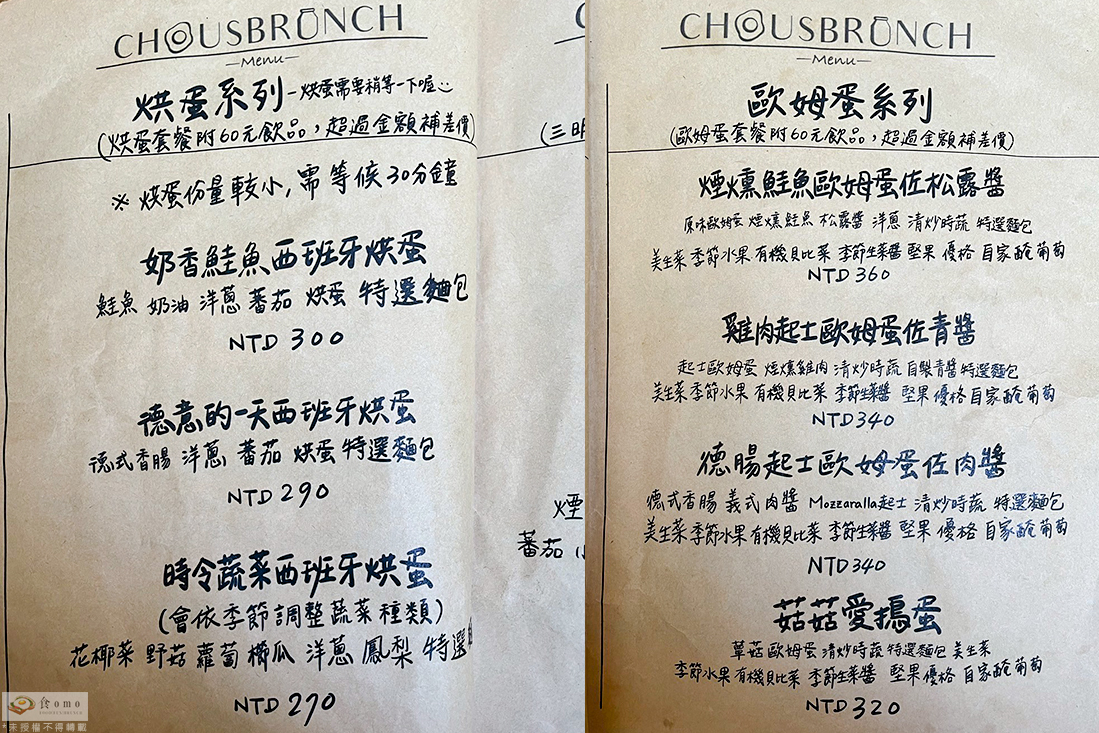 CHOUSBRUNCH
—Menu—
烘蛋系列-烘蛋需要稍等一下喔
(烘蛋套餐附60元飲品,超過金額補差價)
※ 烘蛋份量較小,需等候30分鐘
奶香鮭魚西班牙烘蛋
鮭魚 奶油 洋蔥 蕃茄 烘蛋 特選麵包
NTD 300
德意的一天西班牙烘蛋
德式香腸 洋蔥 蕃茄 烘蛋 特選麵包
NTD 290
時令蔬菜西班牙烘蛋
(會依季節調整蔬菜種類)
花椰菜 野菇 蘿蔔 櫛瓜 洋蔥 鳳梨 特選
NTD 270
(三明
煙
蕃茄
食omo
*未授權不得轉載
CHOUSBRUNCH
—Menu—
歐姆蛋系列
(歐姆蛋套餐附60元飲品,超過金額補差價)
煙燻鮭魚歐姆蛋佐松露醬
原味歐姆蛋 煙燻鮭魚 松露醬 洋蔥 清炒時蔬 特選麵包
美生菜 季節水果 有機貝比菜 季節生菜醬 堅果 優格 自家醃葡萄
NTD 360
雞肉起士歐姆蛋佐青醬
起士歐姆蛋 煙燻雞肉 清炒時蔬 自製青醬 特選麵包
美生菜 季節水果 有機貝比菜 季節生菜醬 堅果 優格 自家醃葡萄
NTD 340
德腸起士歐姆蛋佐肉醬
德式香腸 義式肉醬 Mozzaralla起士 清炒時蔬 特選麵包
美生菜 季節水果 有機貝比菜 季節生菜醬 堅果 優格 自家醃葡萄
NTD 340
菇菇愛搗蛋
蕈菇 歐姆蛋 清炒時蔬 特選麵包 美生菜
季節水果 有機貝比菜 季節生菜醬 堅果 優格 自家醃葡萄
NTD 320